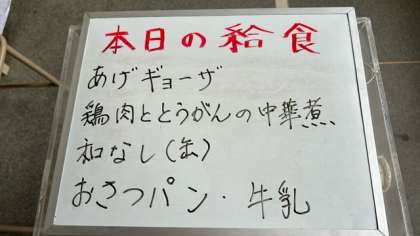 本日の給食
あげギョーザ
鶏肉ととうがんの中華煮
和なし(缶)
おさつパン・牛乳